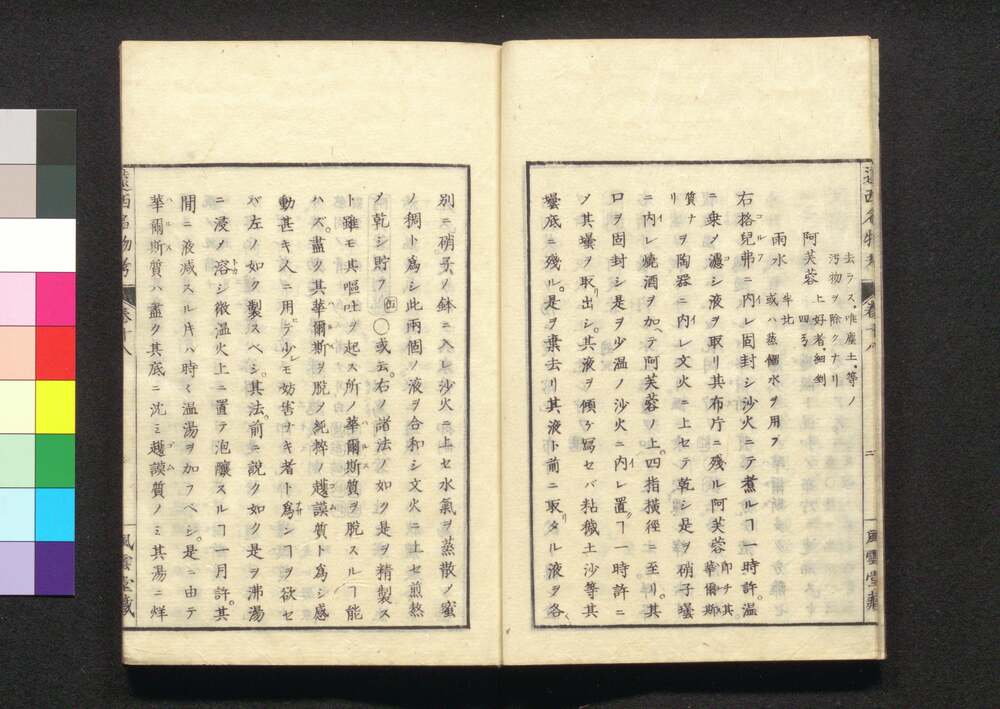 遠西名物考 卷十八 二 風雲堂藏
去ラス、唯塵土、等ノ
汚物ヲ除クナリ
阿芙蓉 上好者、細剉 四ゟ
雨水 或ハ蒸餾水ヲ用フ 半比
右格兒弗ニ内レ固封シ沙火ニテ煮ルヿ一時許。温
ニ乗メ濾シ液ヲ取リ其布片ニ殘ル阿芙蓉 即チ其華爾斯
質ナリ ヲ陶器ニ内レ文火ニ上セテ乾シ是ヲ硝子壜
ニ内レ燒酒ヲ加ヘテ阿芙蓉ノ上。四指橫徑ニ至リ。其
口ヲ固封シ是ヲ少温ノ沙火ニ内レ置ヿ一時許ニ
メ其壜ヲ取出シ。其液ヲ傾ケ寫セバ粘穢土沙等其
壜底ニ殘ル。是ヲ棄去リ其液ト前ニ取タル液ヲ各
別ニ。硝子ノ鉢ニ入レ沙火ニ上セ水氣ヲ蒸散ノ蜜
ノ稠ト爲シ此兩個ノ液ヲ合和シ文火ニ上セ煎熬
メ乾シ貯フ 四 〇或云。右ノ諸法ノ如ク是ヲ精製ス
ト雖モ其嘔吐ヲ起ス所ノ華爾斯質ヲ脱スルヿ能
ハズ。盡ク其華爾斯ヲ脱メ純粹ノ越謨質ト爲シ感
動甚キ人ニ用テ少シモ妨害ナキ者ト爲シヿヲ欲セ
バ左ノ如ク製スベシ。其法。前ニ說ク如ク是ヲ沸湯
ニ浸メ溶シ微温火上ニ置テ泡釀スルヿ一月許。其
間ニ液減スル片ハ時々温湯ヲ加フベシ。是ニ由テ
華爾斯質ハ盡ク其底ニ沈ミ越謨質ノミ其湯ニ烊
遠西名物考 卷十八 風雲堂藏